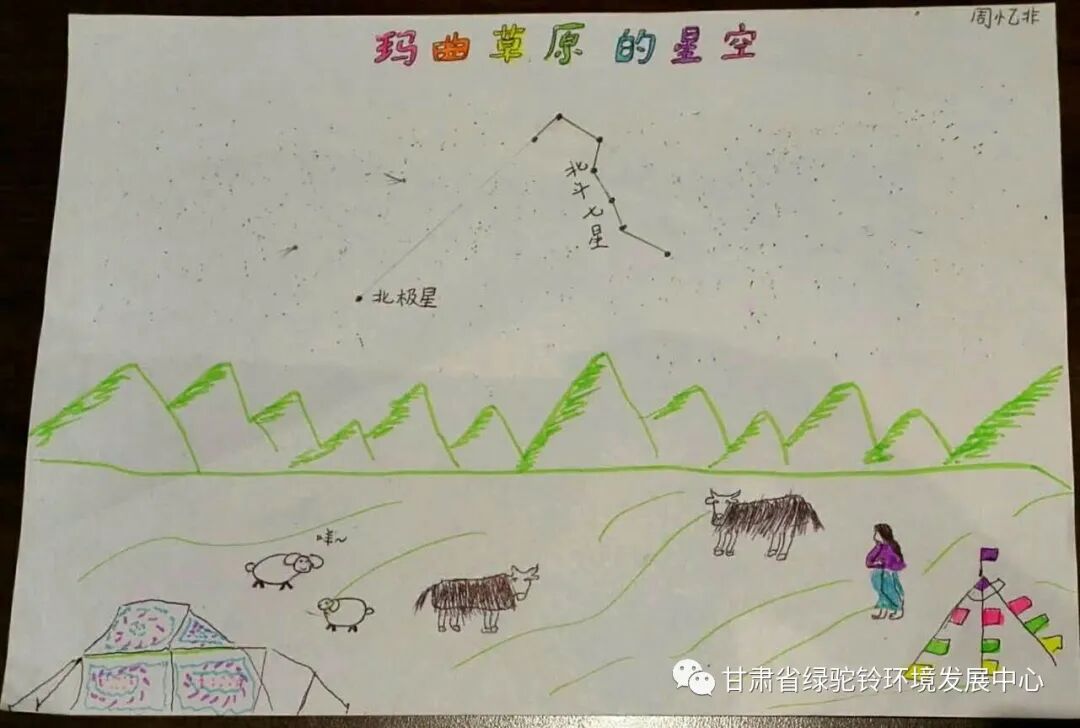 周忆非
玛曲草原的星空
北斗七星
北极星
咩~
甘肃省绿驼铃环境发展中心